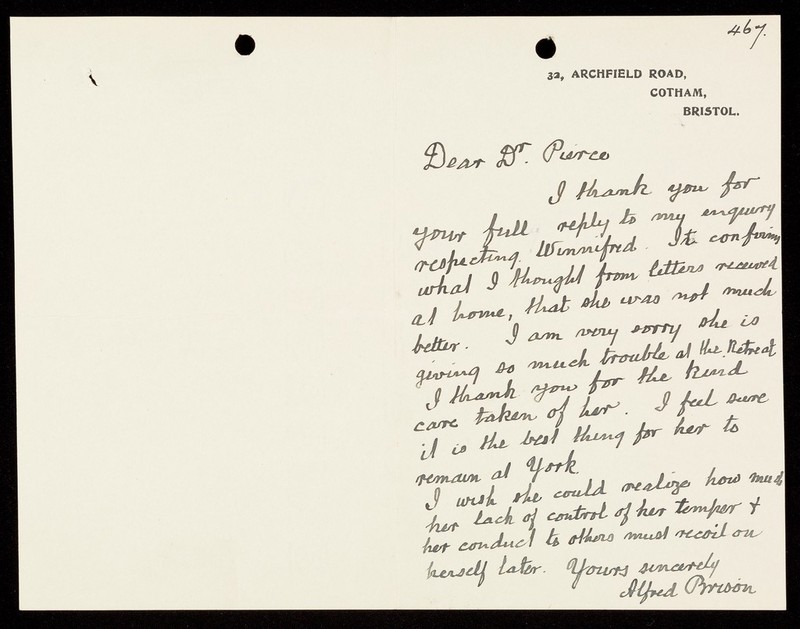 467.
32, ARCHFIELD ROAD,
COTHAM,
BRISTOL.
Dear Dr. Pierce
I thank you for
your full reply to my enquiry
respecting Winnifred. It confirms
what I thought from letters received
at home, that she was not much
better. I am very sorry she is
giving so much trouble at the Retreat
I thank you for the kind
care taken of her. I feel sure
it is the best thing for her to
remain at York.
I wish she could realize how much
her lack of control of her temper &
her conduct to others must recoil on
herself later. Yours sincerely
Alfred